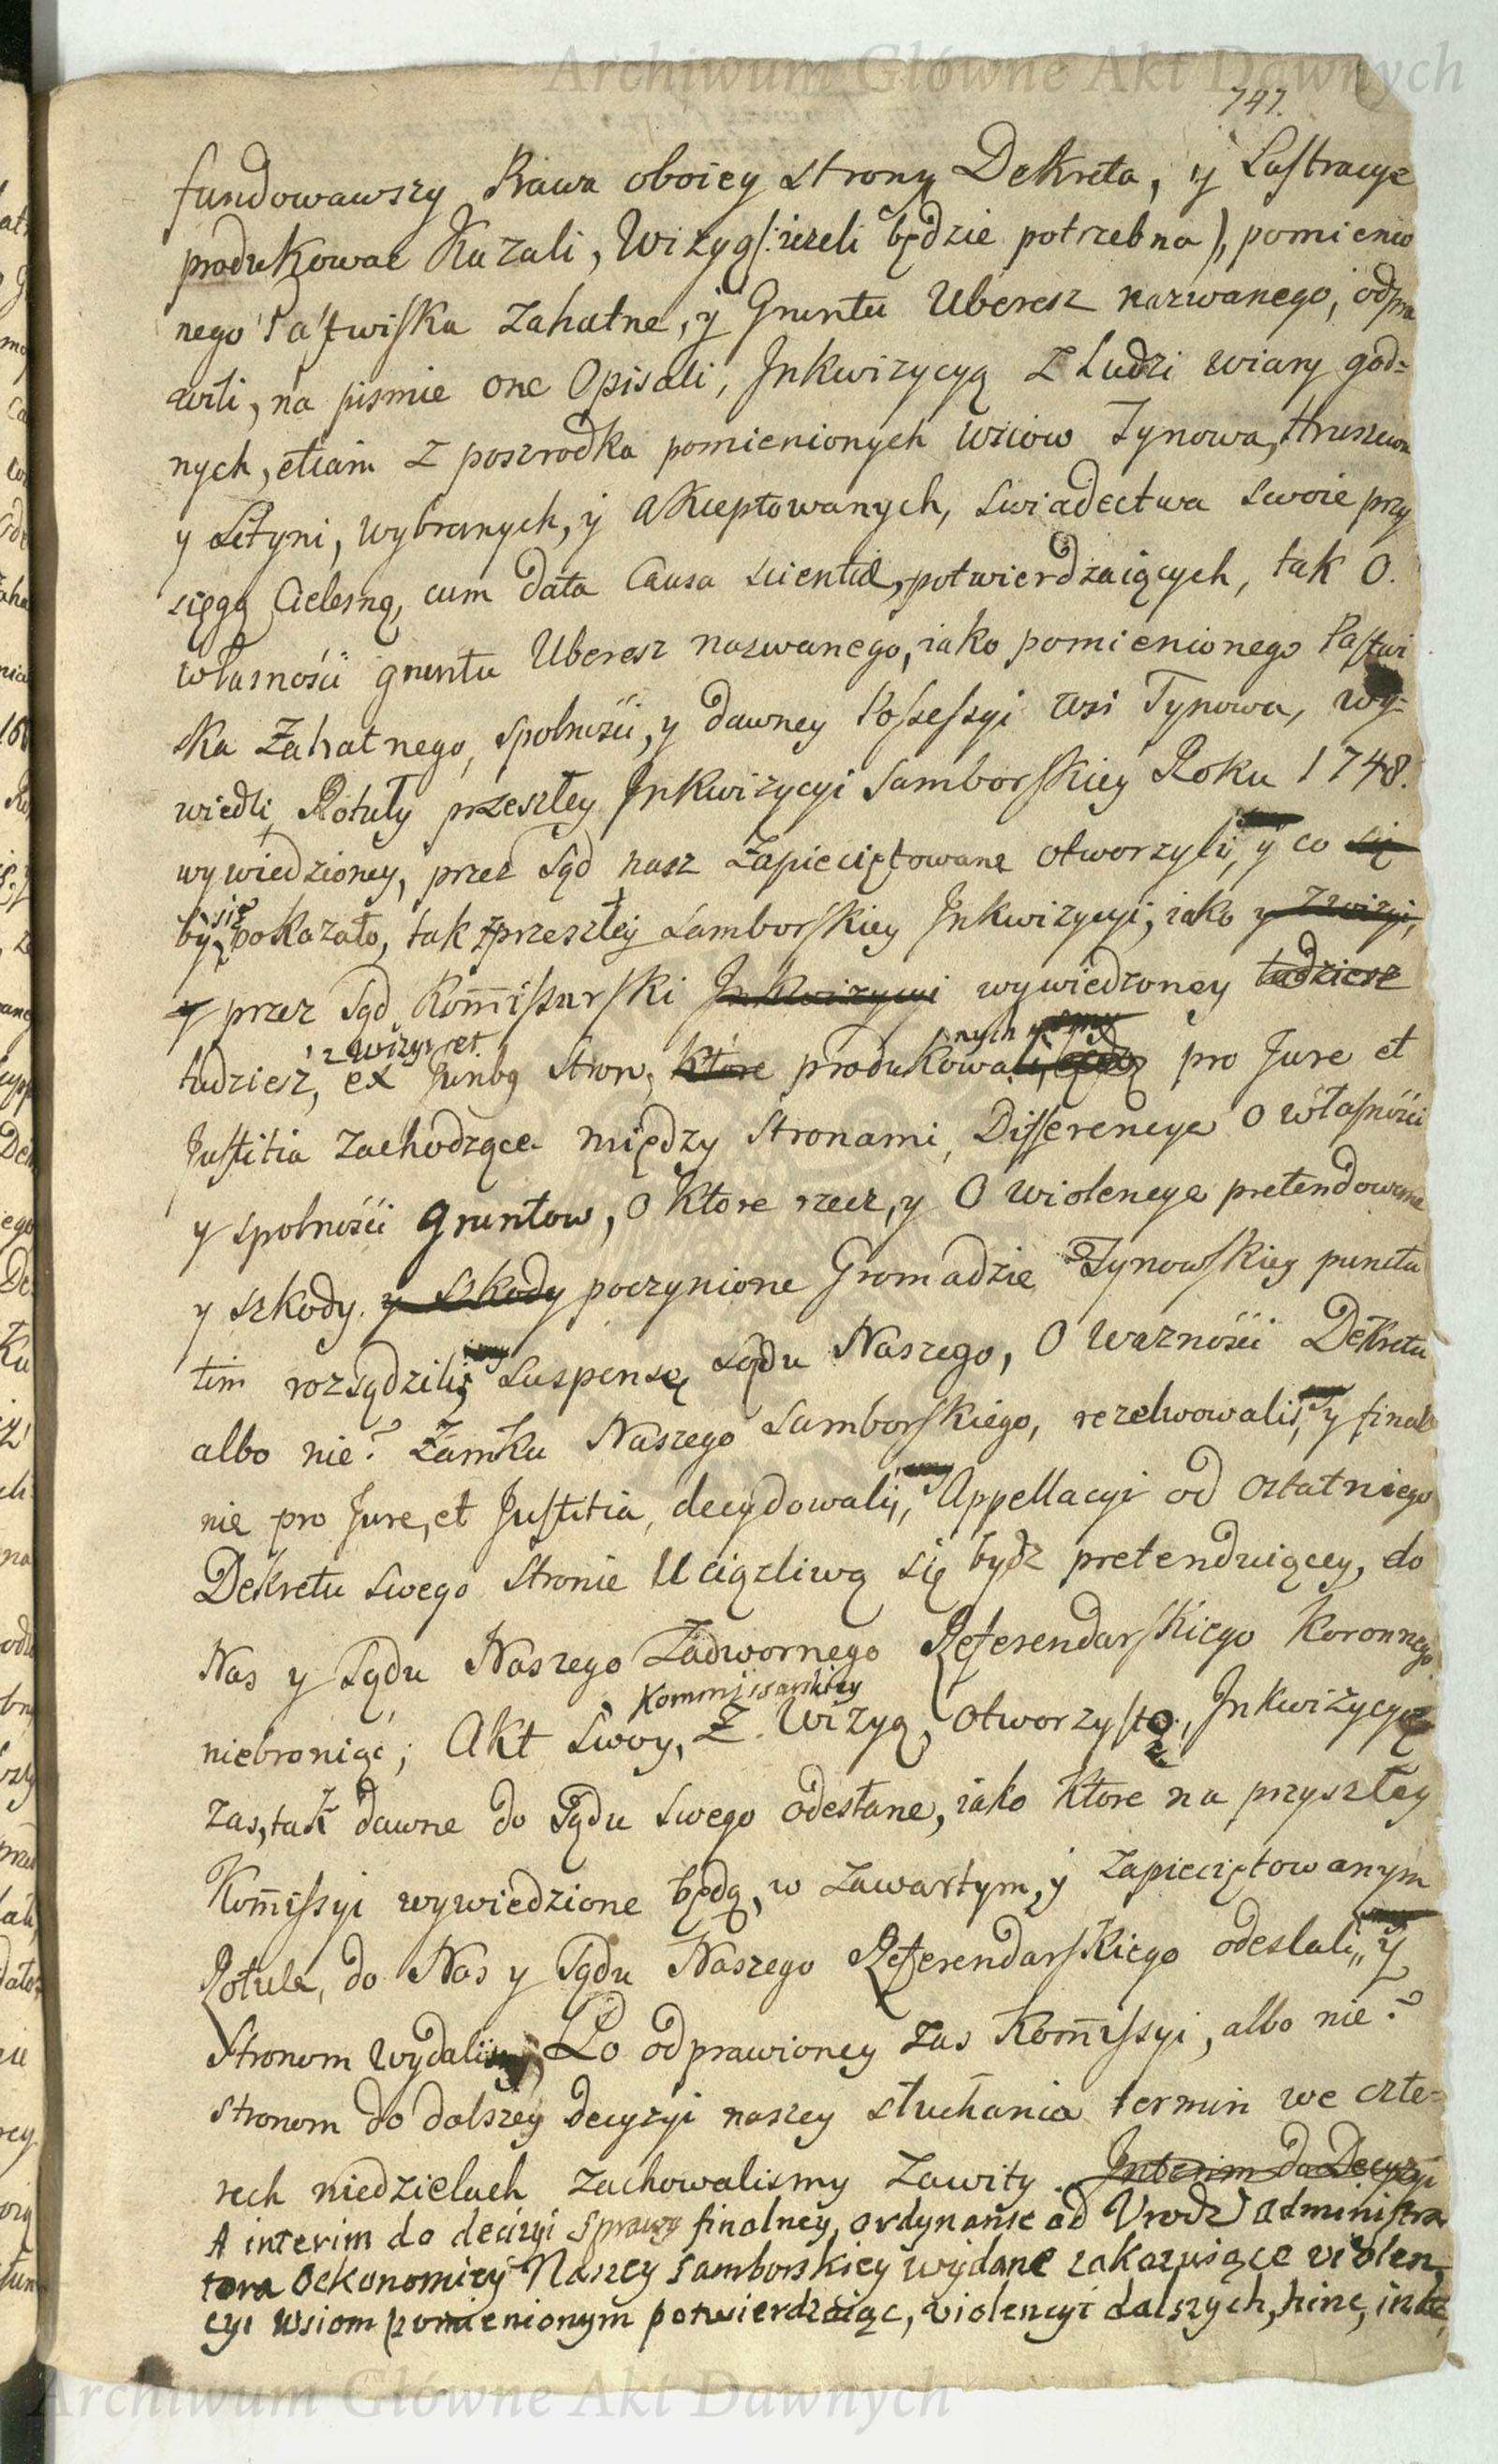 Archiwum Główne Akt Dawnych
747.
fundowawszy Prawa oboiey strony Dekreta, y Lustracye
produkować Kazali, Wizyą (: ieżeli będzie potrzebna), pomienio
nego Pastwiska Zahatne, y Gruntu Uberesz nazwanego, odpra
wili, na pismie one Opisali, Inkwizycyą z Ludzi wiary god=
nych, etiam z poszrodka pomienionych wsiow Tynowa, Hruszowa
y Lityni, wybranych, y akceptowanych, swiadectwa swoie przy
sięgą Cielesną, cum data Causa scientiæ, potwierdzaiących, tak O.
własności gruntu Uberesz nazwanego, iako pomienionego Pastwi
ska Zahatnego, spolności, y dawney Possessyi wsi Tynowa, wy=
wiedli, Rotuły przeszłey Inkwizycyi Samborskiey Roku 1748.
wywiedzioney, przez Sąd nasz Zapieciętowane otworzyli, y co się
by się pokazało, tak z przeszłey Samborskiey Inkwizycyi, iako y z wizyi,
y przez Sąd Kommissarski Inkwizycyi wywiedzoney tudziesz
z wizyi et nych
tudziesz, ex Juribq Stron, które produkowali, pro Jure et
Justitia zachodzące między Stronami, Differencye o własności
y spolności Gruntow, o ktore rzecz, y O wiolencye pretendowane
y szkody. y szkody poczynione Gromadzie Tynowskiey puncta
tim rozsądzili, Suspensę Sądu Naszego, O ważności Dekretu
albo nie? Zamku Naszego Samborskiego, rezolwowali, y final
nie pro Jure, et Justitia, decydowali, Appellacyi od Ostatniego
Dekretu swego Stronie Uciązliwą się bydz pretenduiącey, do
Nas y Sądu Naszego Zadwornego Referendarskiego Koronnego
Kommissarskiey
niebroniąc; Akt Swoy, Z. Wizyą, Otworzystą, Inkwizycye
zas, tak dawne do Sądu Swego odesłane, iako ktore na przyszłey
Kommissyi wywiedzione będą, w zawartym, y zapieciętowanym
Rotule, do Nas y Sądu Naszego Referendarskiego odesłali, y
Stronom wydali, Po odprawioney zas Kommissyi, albo nie?
Stronom do dalszey Decyzyi naszey słuchania termin we czte=
rech niedzielach zachowalismy Zawity. Interim do Decyzyi
A interim do decizyi Sprawy finalney, ordynanse od Urodz Administra
tora Oekonomiey Naszey Samborskiey wydane zakazuiące violen
cyi wsiom pomienionym potwierdzaiąc, violencyi dalszych, hinc, inde,
Archiwum Główne Akt Dawnych